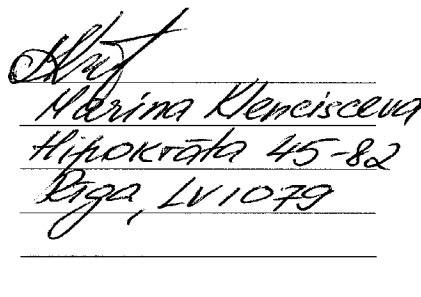 Marina Klencisceva
Hipokrāta 45-82
Rīga, LV1079